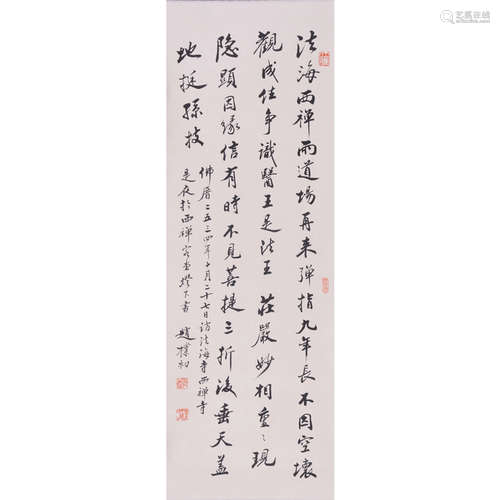 法海西禅两道场再来弹指九年长不因空壞
觀成住争識醫王是法王 莊嚴妙相重〻現
隐顕因缘信有時不見菩提三折後垂天蓋
地挺孫枝
佛曆二五三四年十月二十七日访法海寺西禅寺
是夜於西禅客堂燈下書 趙樸初